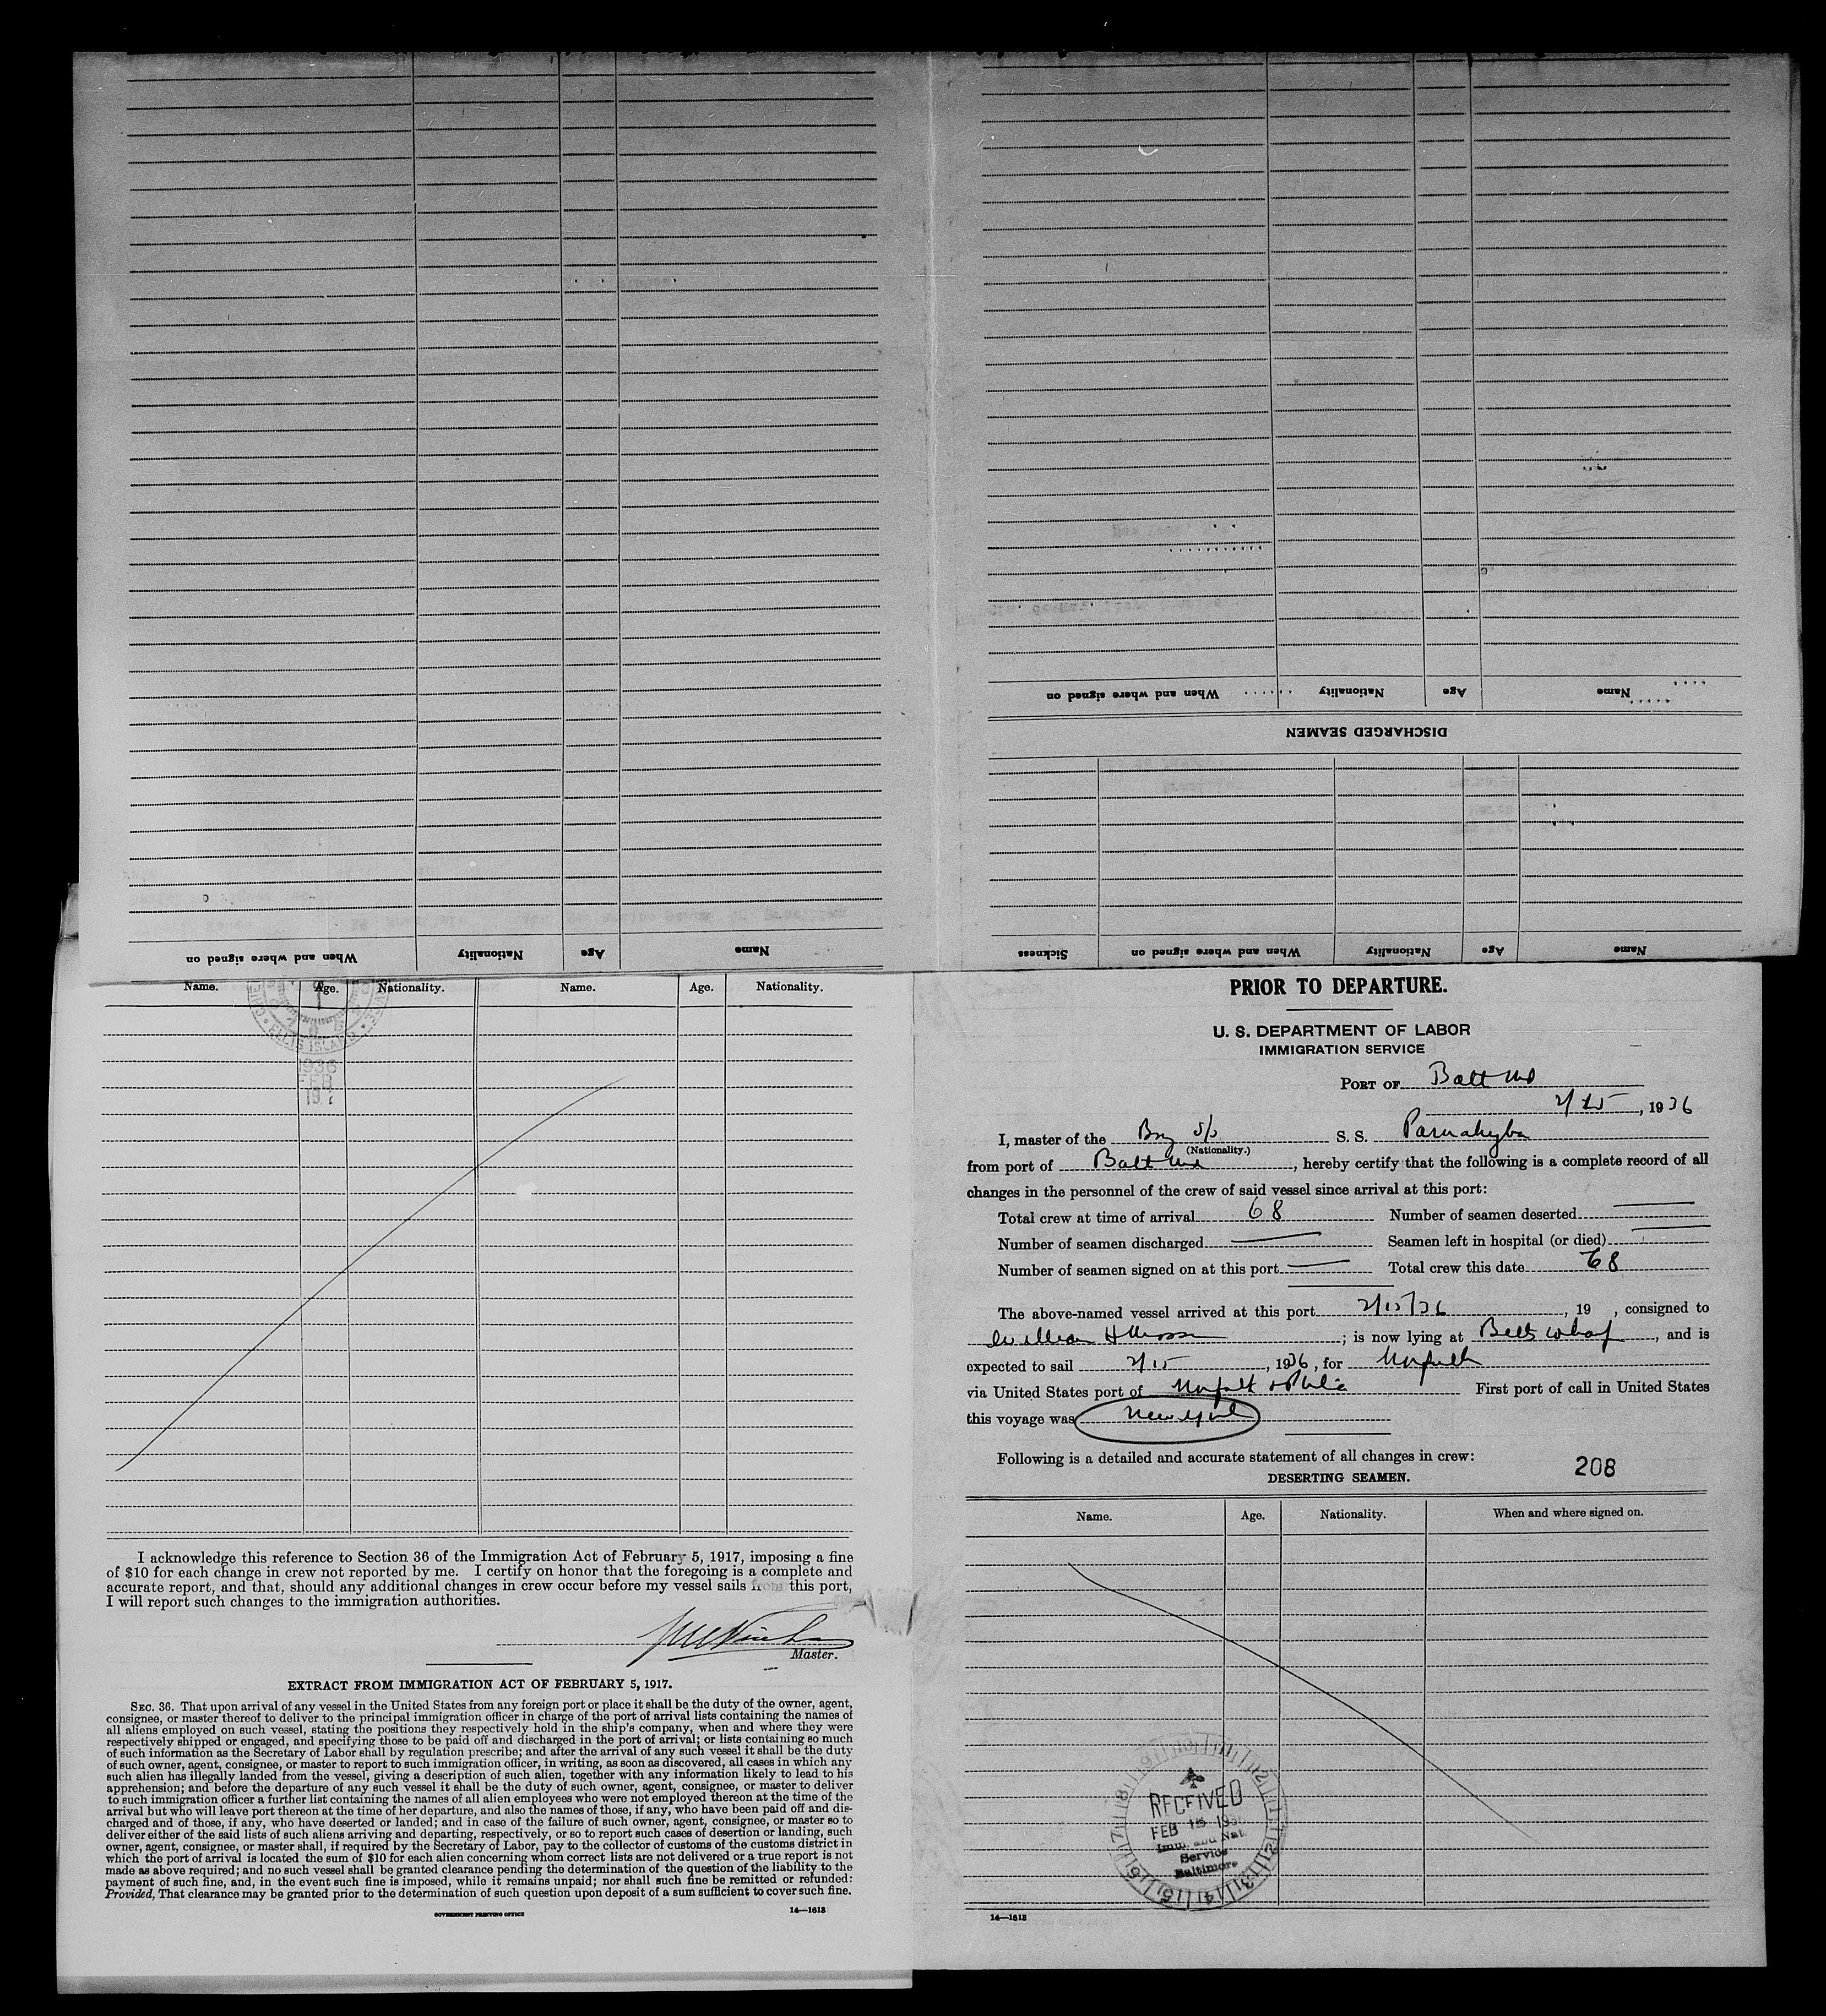 When and where signed on Nationality Age Name
Sickness When and where signed on Nationality Age Name
DISCHARGED SEAMEN
When and where signed on Nationality Age Name
Name. Age. Nationality. Name. Age. Nationality.
ELLIS ISLAND
1936
FEB
I acknowledge this reference to Section 36 of the Immigration Act of February 5, 1917, imposing a fine
of $10 for each change in crew not reported by me. I certify on honor that the foregoing is a complete and
accurate report, and that, should any additional changes in crew occur before my vessel sails from this port,
I will report such changes to the immigration authorities.
Master.
EXTRACT FROM IMMIGRATION ACT OF FEBRUARY 5, 1917.
SEC. 36. That upon arrival of any vessel in the United States from any foreign port or place it shall be the duty of the owner, agent,
consignee, or master thereof to deliver to the principal immigration officer in charge of the port of arrival lists containing the names of
all aliens employed on such vessel, stating the positions they respectively hold in the ship's company, when and where they were
respectively shipped or engaged, and specifying those to be paid off and discharged in the port of arrival; or lists containing so much
of such information as the Secretary of Labor shall by regulation prescribe; and after the arrival of any such vessel it shall be the duty
of such owner, agent, consignee, or master to report to such immigration officer, in writing, as soon as discovered, all cases in which any
such alien has illegally landed from the vessel, giving a description of such alien, together with any information likely to lead to his
apprehension; and before the departure of any such vessel it shall be the duty of such owner, agent, consignee, or master to deliver
to such immigration officer a further list containing the names of all alien employees who were not employed thereon at the time of the
arrival but who will leave port thereon at the time of her departure, and also the names of those, if any, who have been paid off and dis-
charged and of those, if any, who have deserted or landed; and in case of the failure of such owner, agent, consignee, or master so to
deliver either of the said lists of such aliens arriving and departing, respectively, or so to report such cases of desertion or landing, such
owner, agent, consignee, or master shall, if required by the Secretary of Labor, pay to the collector of customs of the customs district in
which the port of arrival is located the sum of $10 for each alien concerning whom correct lists are not delivered or a true report is not
made as above required; and no such vessel shall be granted clearance pending the determination of the question of the liability to the
payment of such fine, and, in the event such fine is imposed, while it remains unpaid; nor shall such fine be remitted or refunded:
Provided, That clearance may be granted prior to the determination of such question upon deposit of a sum sufficient to cover such fine.
GOVERNMENT PRINTING OFFICE 14—1613
PRIOR TO DEPARTURE.
U. S. DEPARTMENT OF LABOR
IMMIGRATION SERVICE
PORT OF Balt Md
2/15, 1936
I, master of the Braz S/S S. S. Parnahyba
(Nationality.)
from port of Balt Md, hereby certify that the following is a complete record of all
changes in the personnel of the crew of said vessel since arrival at this port:
Total crew at time of arrival 68 Number of seamen deserted
Number of seamen discharged Seamen left in hospital (or died)
Number of seamen signed on at this port Total crew this date 68
The above-named vessel arrived at this port 2/15/36, 19 , consigned to
William H ; is now lying at Belts Wharf, and is
expected to sail 2/15, 1936, for Norfolk
via United States port of Norfolk + Phila First port of call in United States
this voyage was New York
Following is a detailed and accurate statement of all changes in crew:
208
DESERTING SEAMEN.
Name. Age. Nationality. When and where signed on.
RECEIVED
FEB 15 193
Imm. and Nat.
Service
Baltimore
14—1613